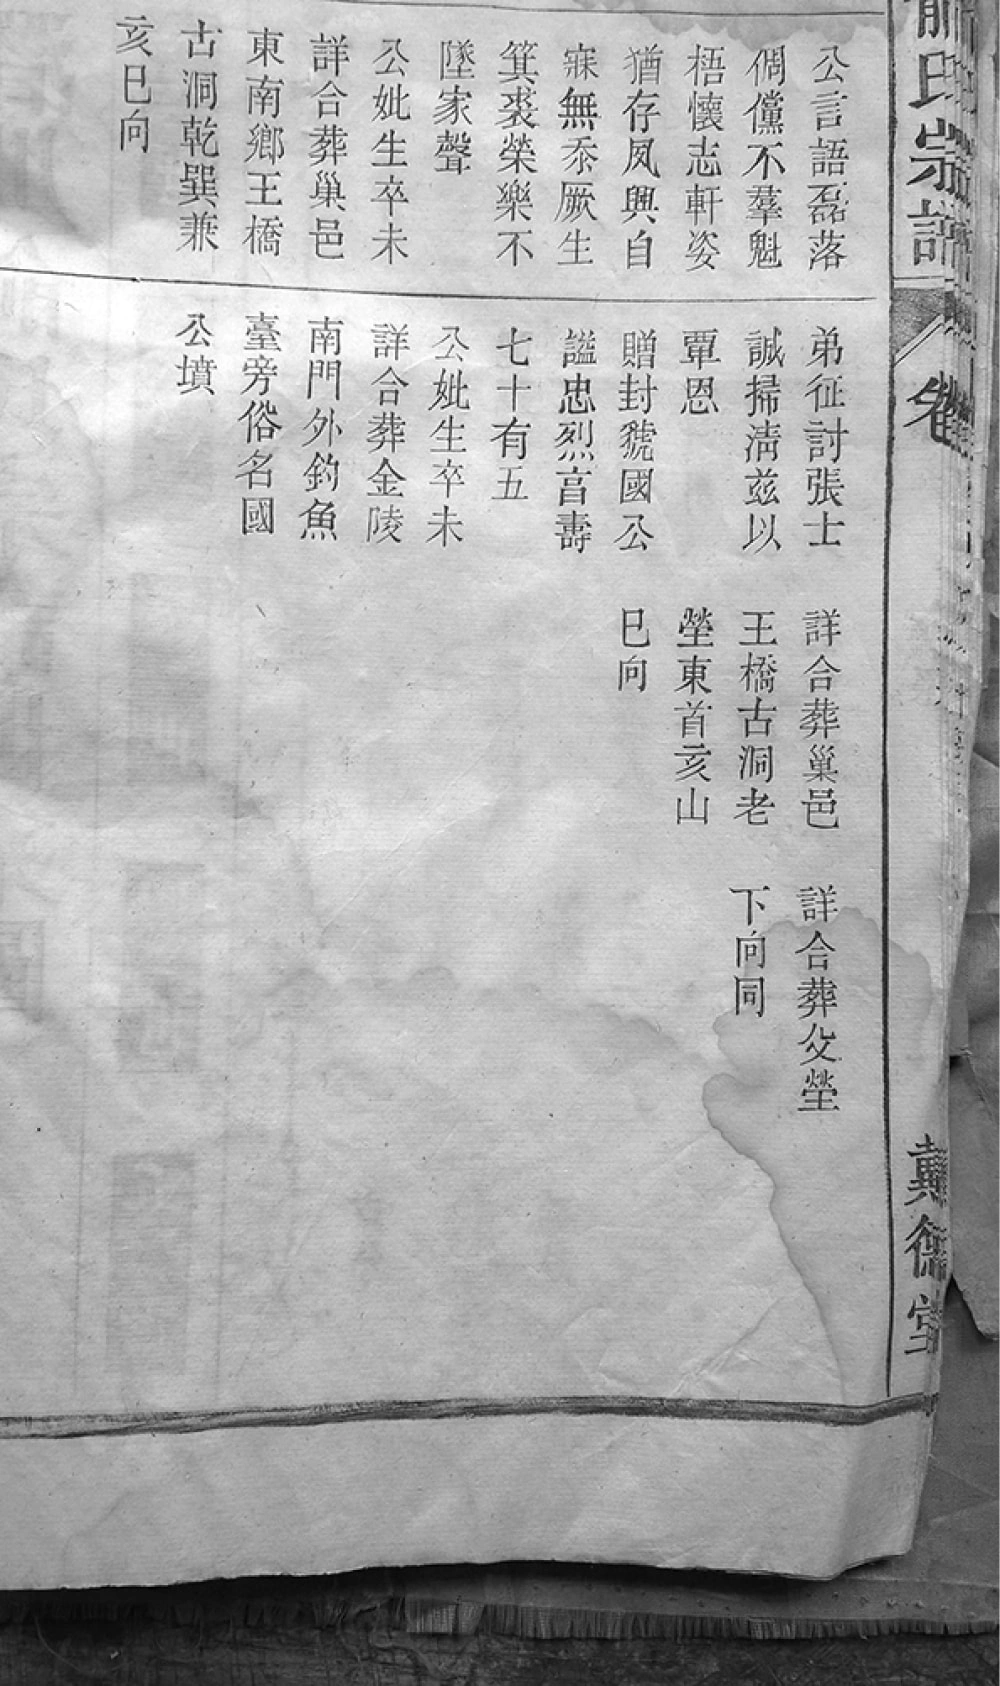 俞氏宗譜
卷
戴德堂
公言語磊落
倜儻不羣魁
梧懷志軒姿
猶存夙興自
寐無忝厥生
箕裘榮樂不
墜家聲
公妣生卒未
詳合葬巢邑
東南鄉王橋
古洞乾巽兼
亥巳向
弟征討張士
誠掃淸兹以
覃恩
贈封虢國公
謚忠烈享壽
七十有五
公妣生卒未
詳合葬金陵
南門外釣魚
臺旁俗名國
公墳
詳合葬巢邑
王橋古洞老
塋東首亥山
巳向
詳合葬父塋
下向同